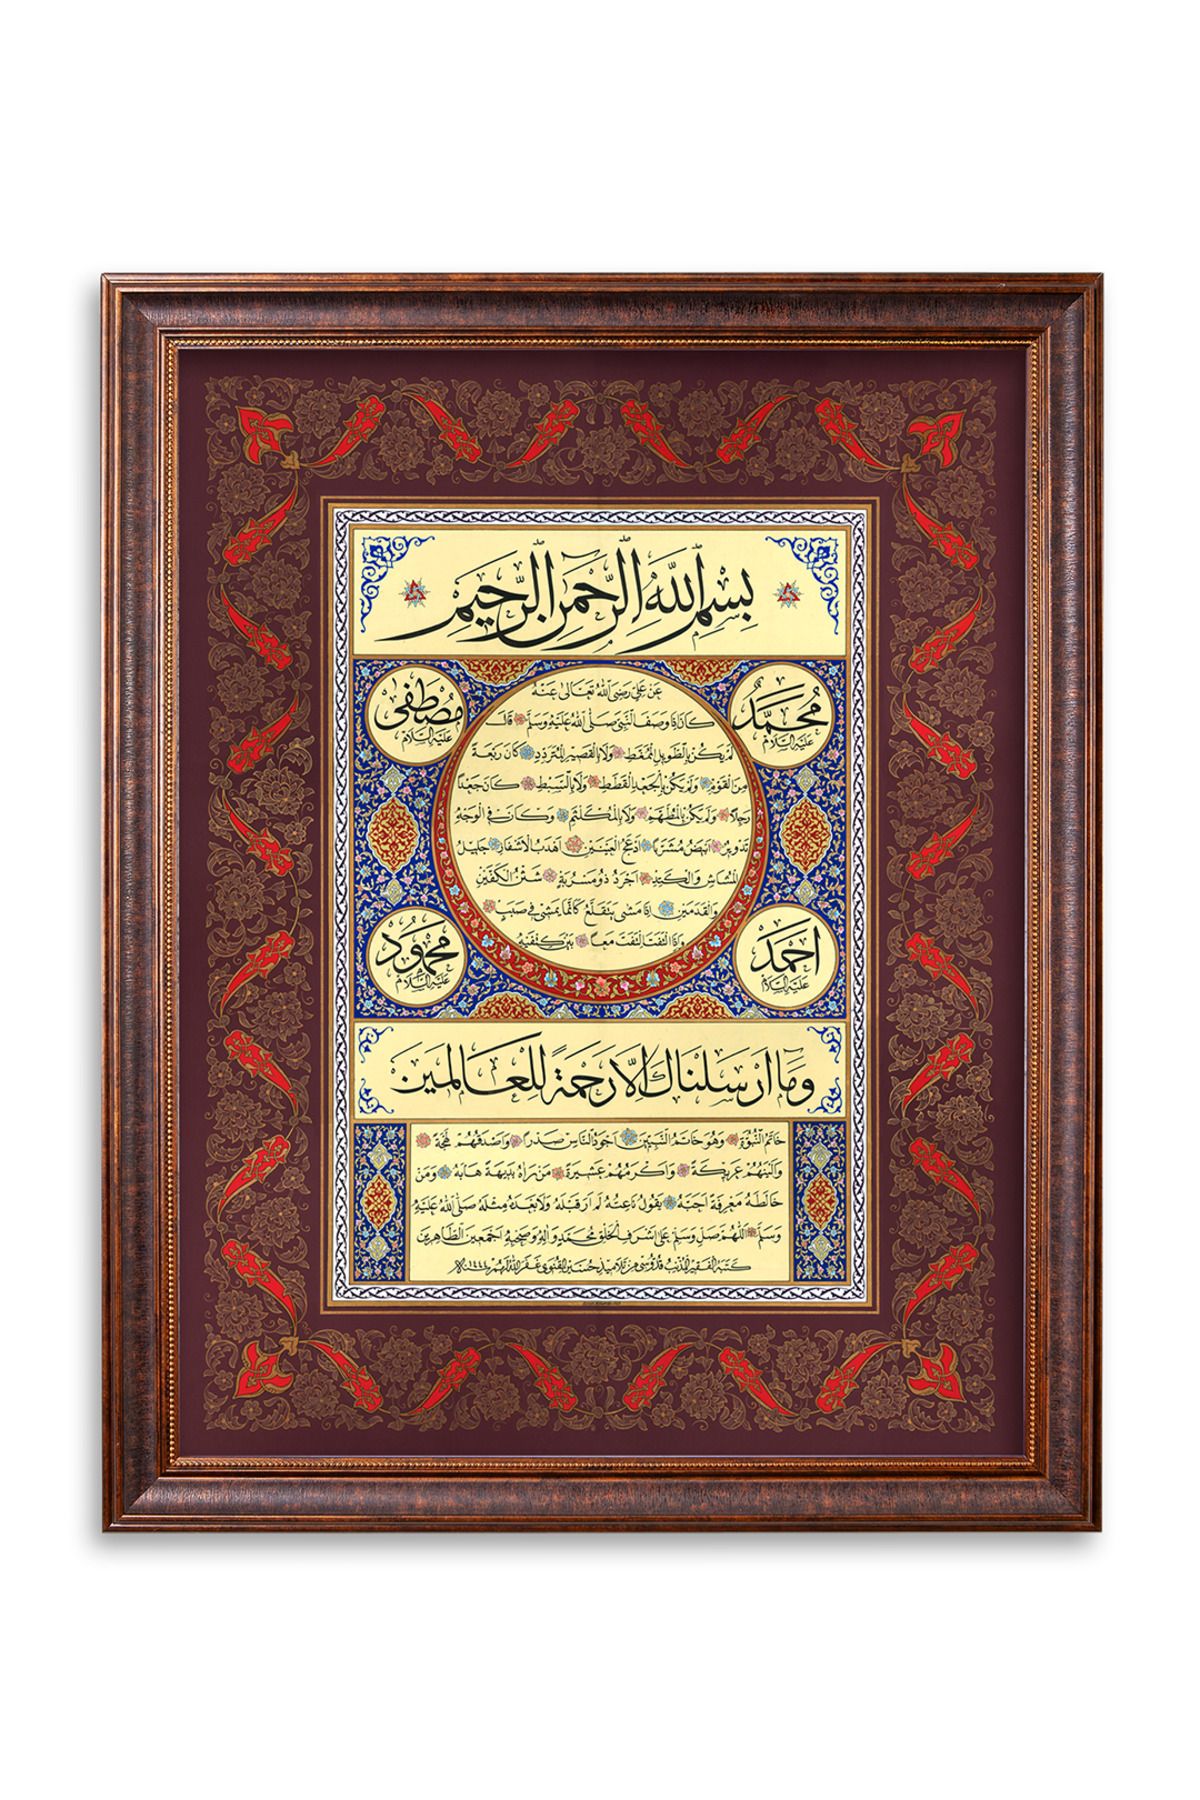 بِسْمِ اللهِ الرَّحْمٰنِ الرَّحِيمِ
مُحَمَّدٌ عَلَيْهِ السَّلَامُ
مُصْطَفٰى عَلَيْهِ السَّلَامُ
عَنْ عَلِيٍّ رَضِيَ اللهُ تَعَالٰى عَنْهُ
كَانَ إِذَا وَصَفَ النَّبِيَّ صَلَّى اللهُ عَلَيْهِ وَسَلَّمَ قَالَ
لَمْ يَكُنْ بِالطَّوِيلِ الْمُمَّغِطِ وَلَا بِالْقَصِيرِ الْمُتَرَدِّدِ كَانَ رَبْعَةً
مِنَ الْقَوْمِ وَلَمْ يَكُنْ بِالْجَعْدِ الْقَطَطِ وَلَا بِالسَّبِطِ كَانَ جَعْدًا
رَجِلًا وَلَمْ يَكُنْ بِالْمُطَهَّمِ وَلَا بِالْمُكَلْثَمِ وَكَانَ فِي الْوَجْهِ
تَدْوِيرٌ اَبْيَضُ مُشْرَبًا اَدْعَجُ الْعَيْنَيْنِ اَهْدَبُ الْاَشْفَارِ جَلِيلُ
الْمُشَاشِ وَالْكَتِدِ اَجْرَدُ ذُو مَسْرُبَةٍ شَثْنُ الْكَفَّيْنِ
وَالْقَدَمَيْنِ اِذَا مَشٰى يَتَقَلَّعُ كَاَنَّمَا يَمْشِي فِي صَبَبٍ
وَاِذَا الْتَفَتَ الْتَفَتَ مَعًا بَيْنَ كَتِفَيْهِ
اَحْمَدُ عَلَيْهِ السَّلَامُ
مَحْمُودٌ عَلَيْهِ السَّلَامُ
وَمَا اَرْسَلْنَاكَ اِلَّا رَحْمَةً لِلْعَالَمِينَ
خَاتَمُ النُّبُوَّةِ وَهُوَ خَاتَمُ النَّبِيِّينَ اَجْوَدُ النَّاسِ صَدْرًا وَاَصْدَقُهُمْ لَهْجَةً
وَاَلْيَنُهُمْ عَرِيكَةً وَاَكْرَمُهُمْ عَشِيرَةً مَنْ رَاٰهُ بَدِيهَةً هَابَهُ وَمَنْ
خَالَطَهُ مَعْرِفَةً اَحَبَّهُ يَقُولُ نَاعِتُهُ لَمْ اَرَ قَبْلَهُ وَلَا بَعْدَهُ مِثْلَهُ صَلَّى اللهُ عَلَيْهِ
وَسَلَّمَ اَللّٰهُمَّ صَلِّ وَسَلِّمْ عَلٰى اَشْرَفِ الْخَلْقِ مُحَمَّدٍ وَاٰلِهِ وَصَحْبِهِ اَجْمَعِينَ الطَّاهِرِينَ
كَتَبَهُ الْفَقِيرُ الْمُذْنِبُ مِنْ تَلَامِيذِ حُسَيْنِ الْقُونَوِي غَفَرَ اللهُ